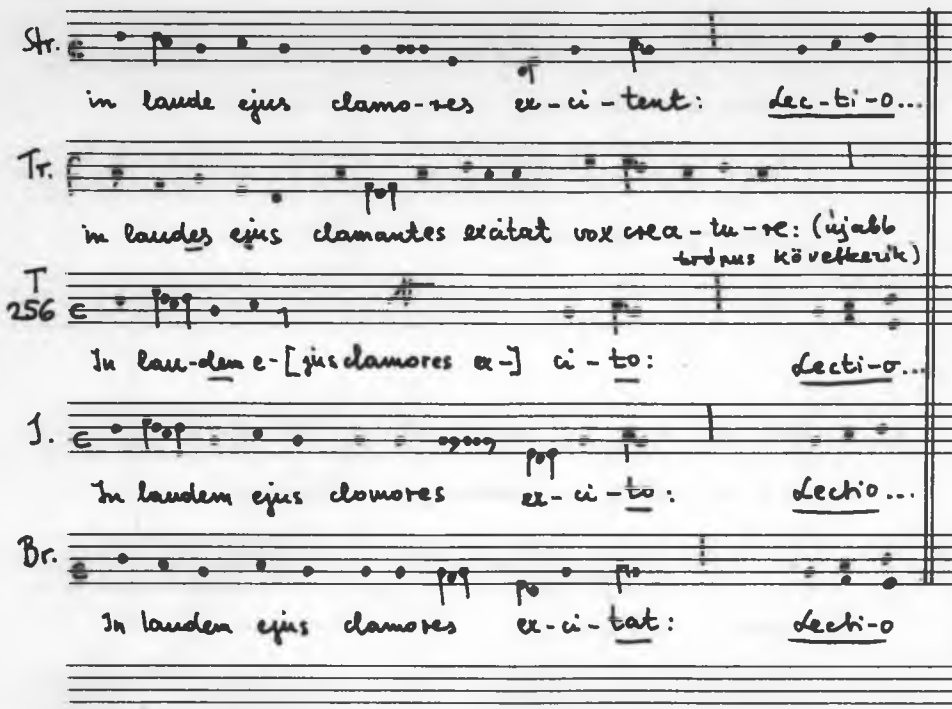 Str.
in laude ejus clamo-res ex-ci-tent: Lec-ti-o...
Tr.
in laudes ejus clamantes excitat vox crea-tu-re: (újabb
trópus következik)
T
256
In lau-dem e-[jus clamores ex-] ci-to: Lecti-o...
I.
In laudem ejus clomores ex-ci-to: Lectio...
Br.
In laudem ejus clamores ex-ci-tat: Lecti-o